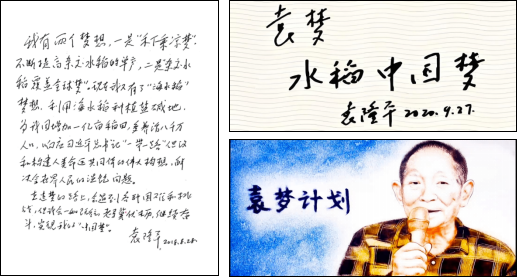 我有两个梦想,一是"禾下乘凉梦",
不断提高杂交水稻的单产,二是"杂交水
稻覆盖全球梦"。现在我又有了"海水稻"
梦想,利用海水稻种植盐碱地,
为我国增加一亿亩稻田,多养活八千万
人口,响应习近平总书记"一带一路"倡议
和构建人类命运共同体的伟大构想,解
决全世界人民的温饱问题。
在追梦的路上,会遇到各种困难和挑
战,但我会一如既往
斗,实现我的"中国梦"。
袁隆平
袁梦
水稻中国梦
袁隆平 2020.9.27.
袁梦计划